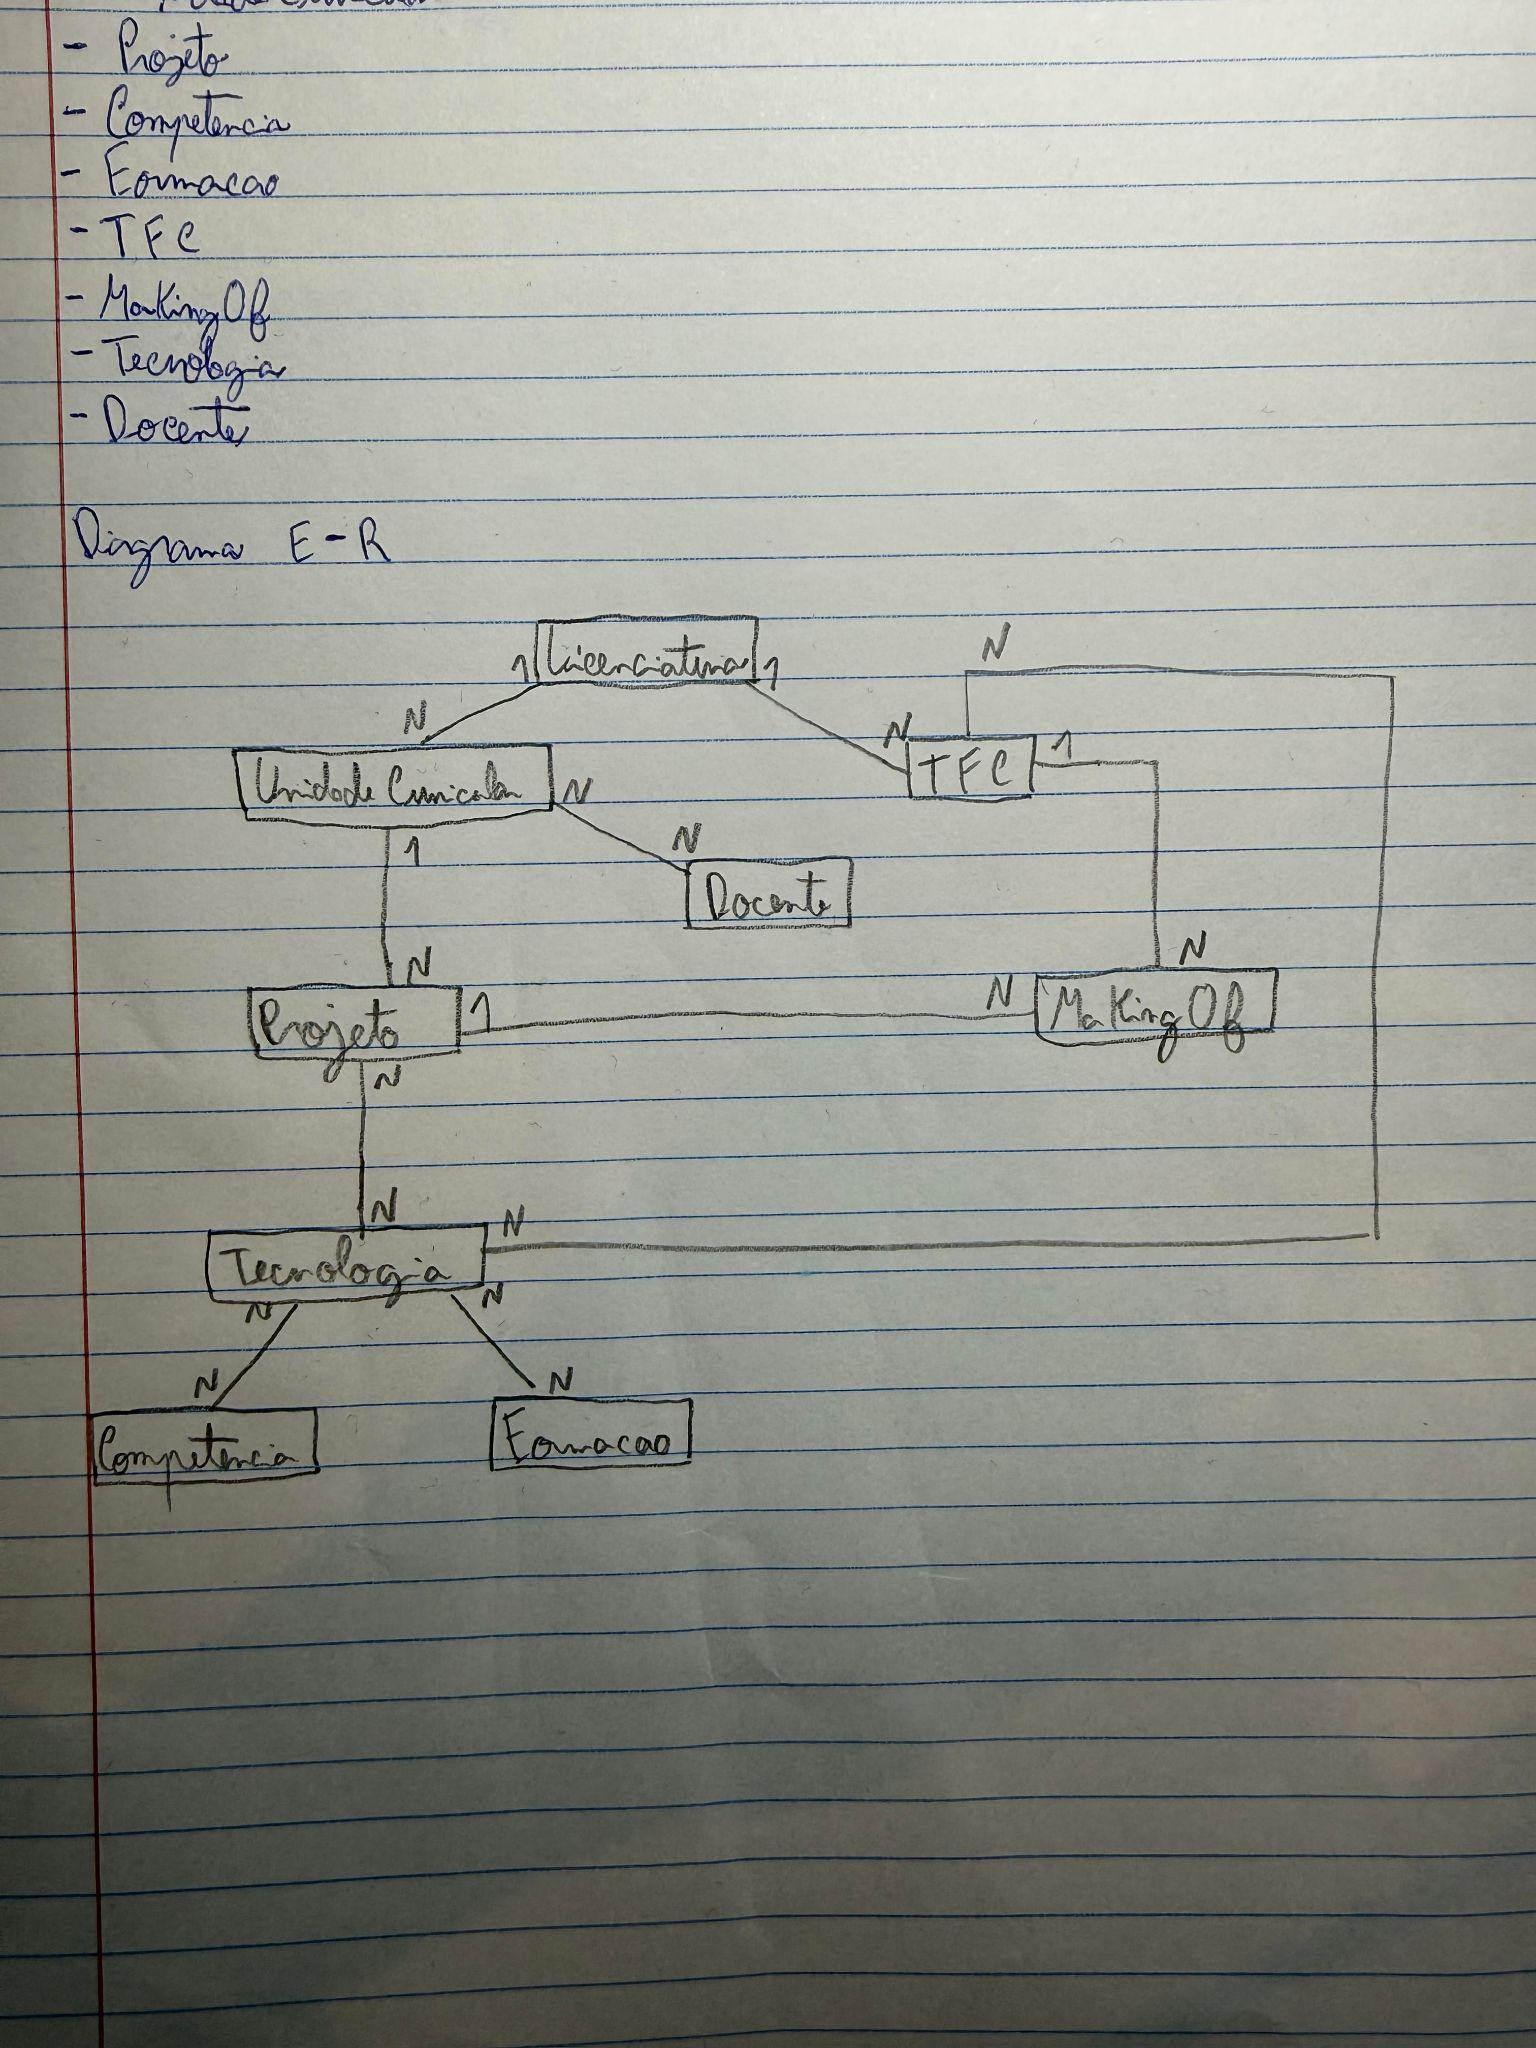 - Projeto
- Competencia
- Formacao
- TFC
- MakingOf
- Tecnologia
- Docente
Diagrama E-R
1 Licenciatura 1
N
N
N TFC 1
Unidade Curricular N
1
N
Docente
N
N
Projeto 1
N MakingOf
N
N
N
Tecnologia
N
N
N
N
Competencia
Formacao